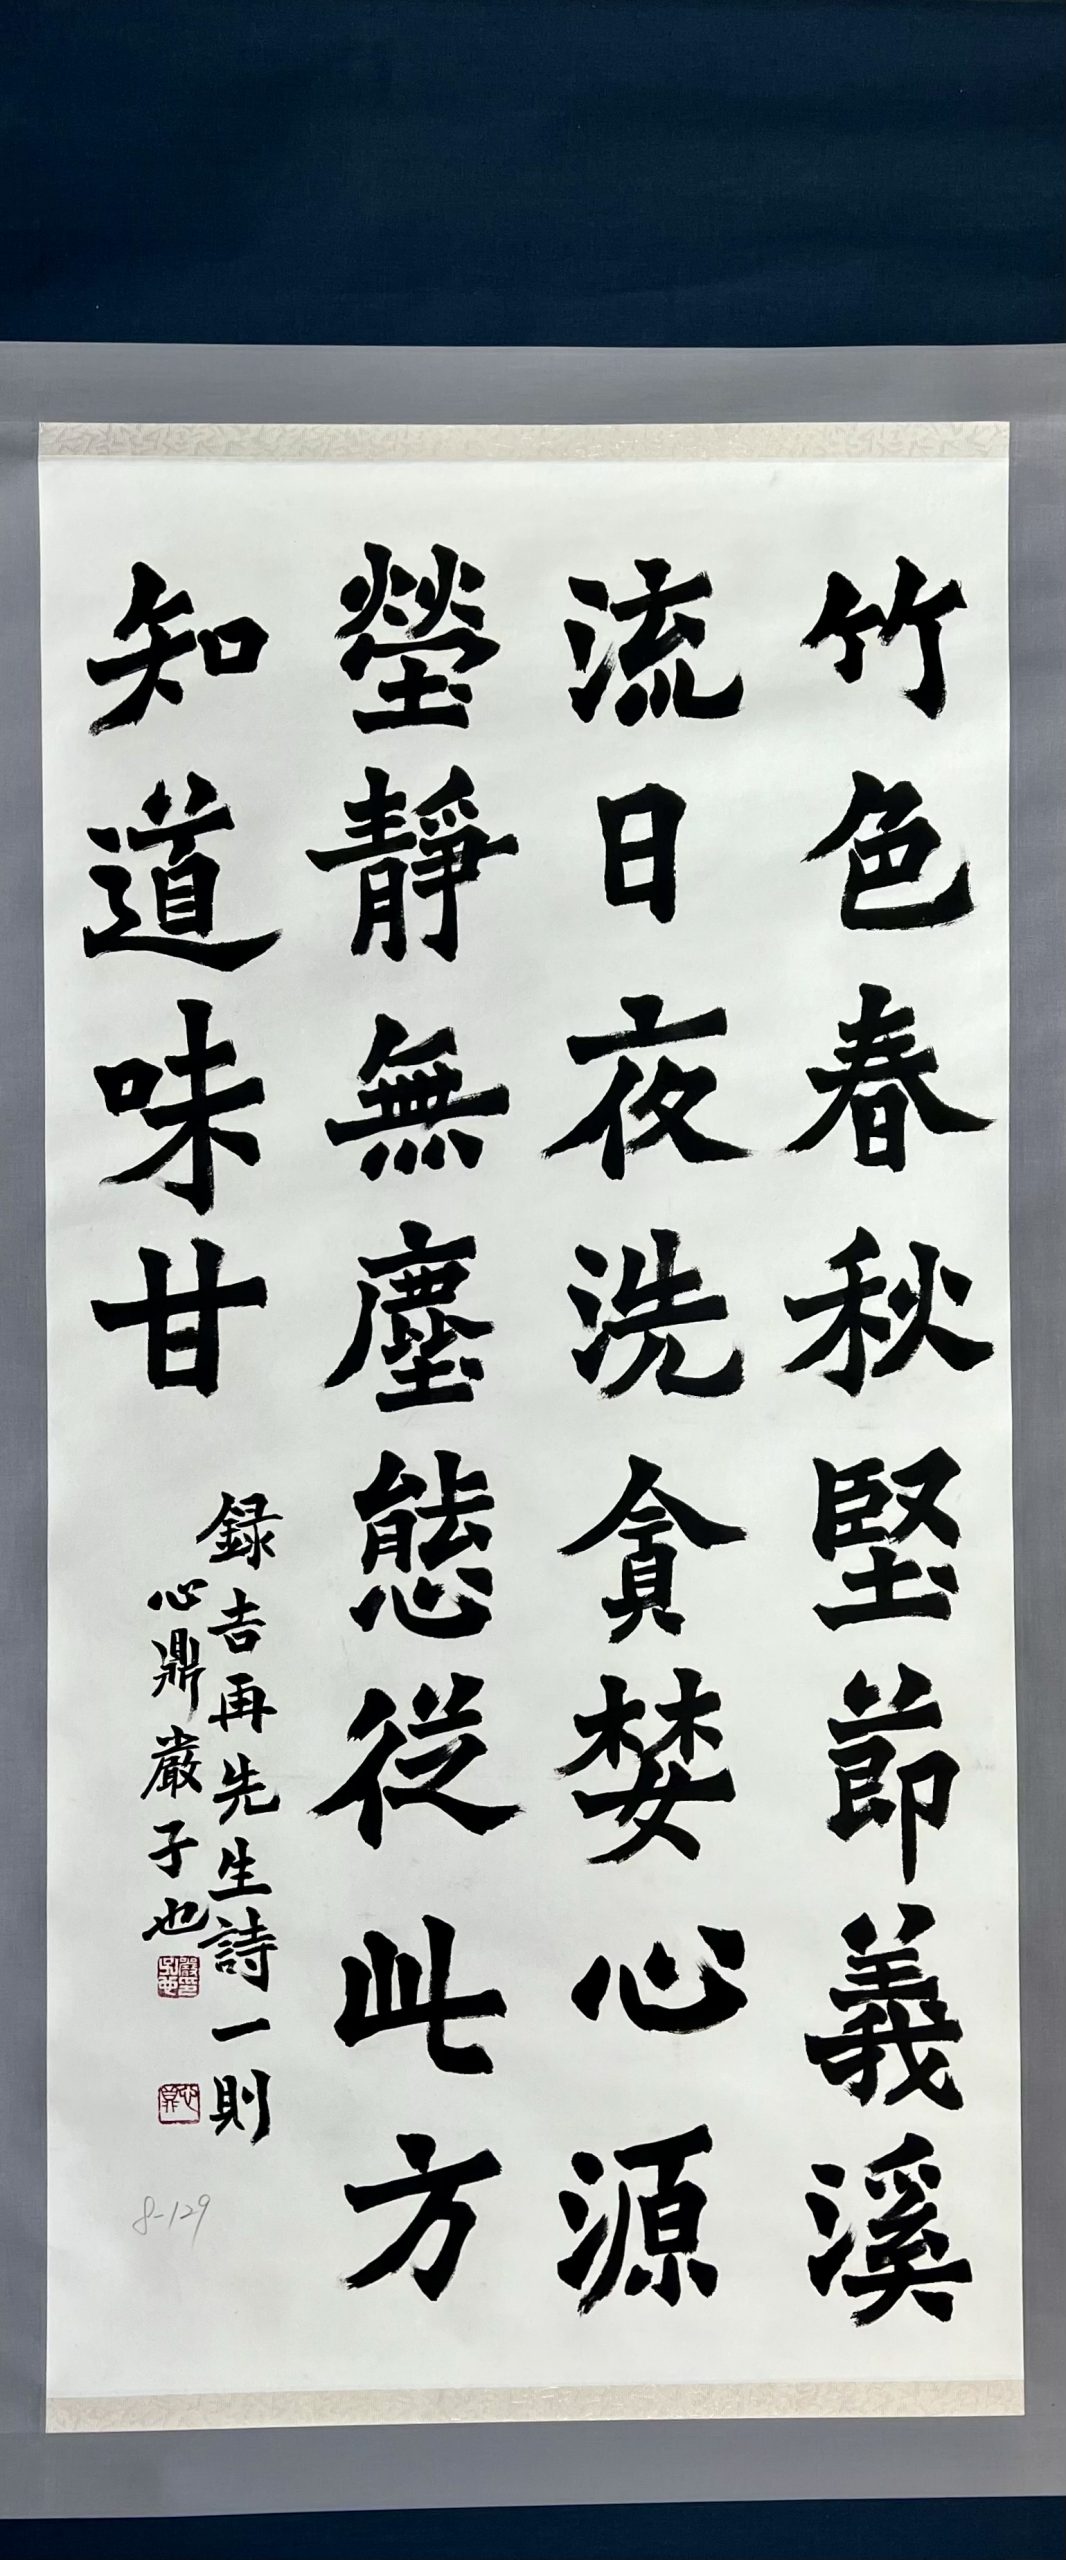 竹色春秋堅節義溪
流日夜洗貪婪心源
瑩靜無塵態從此方
知道味甘
録吉再先生詩一則
心鼎嚴子也
8-129